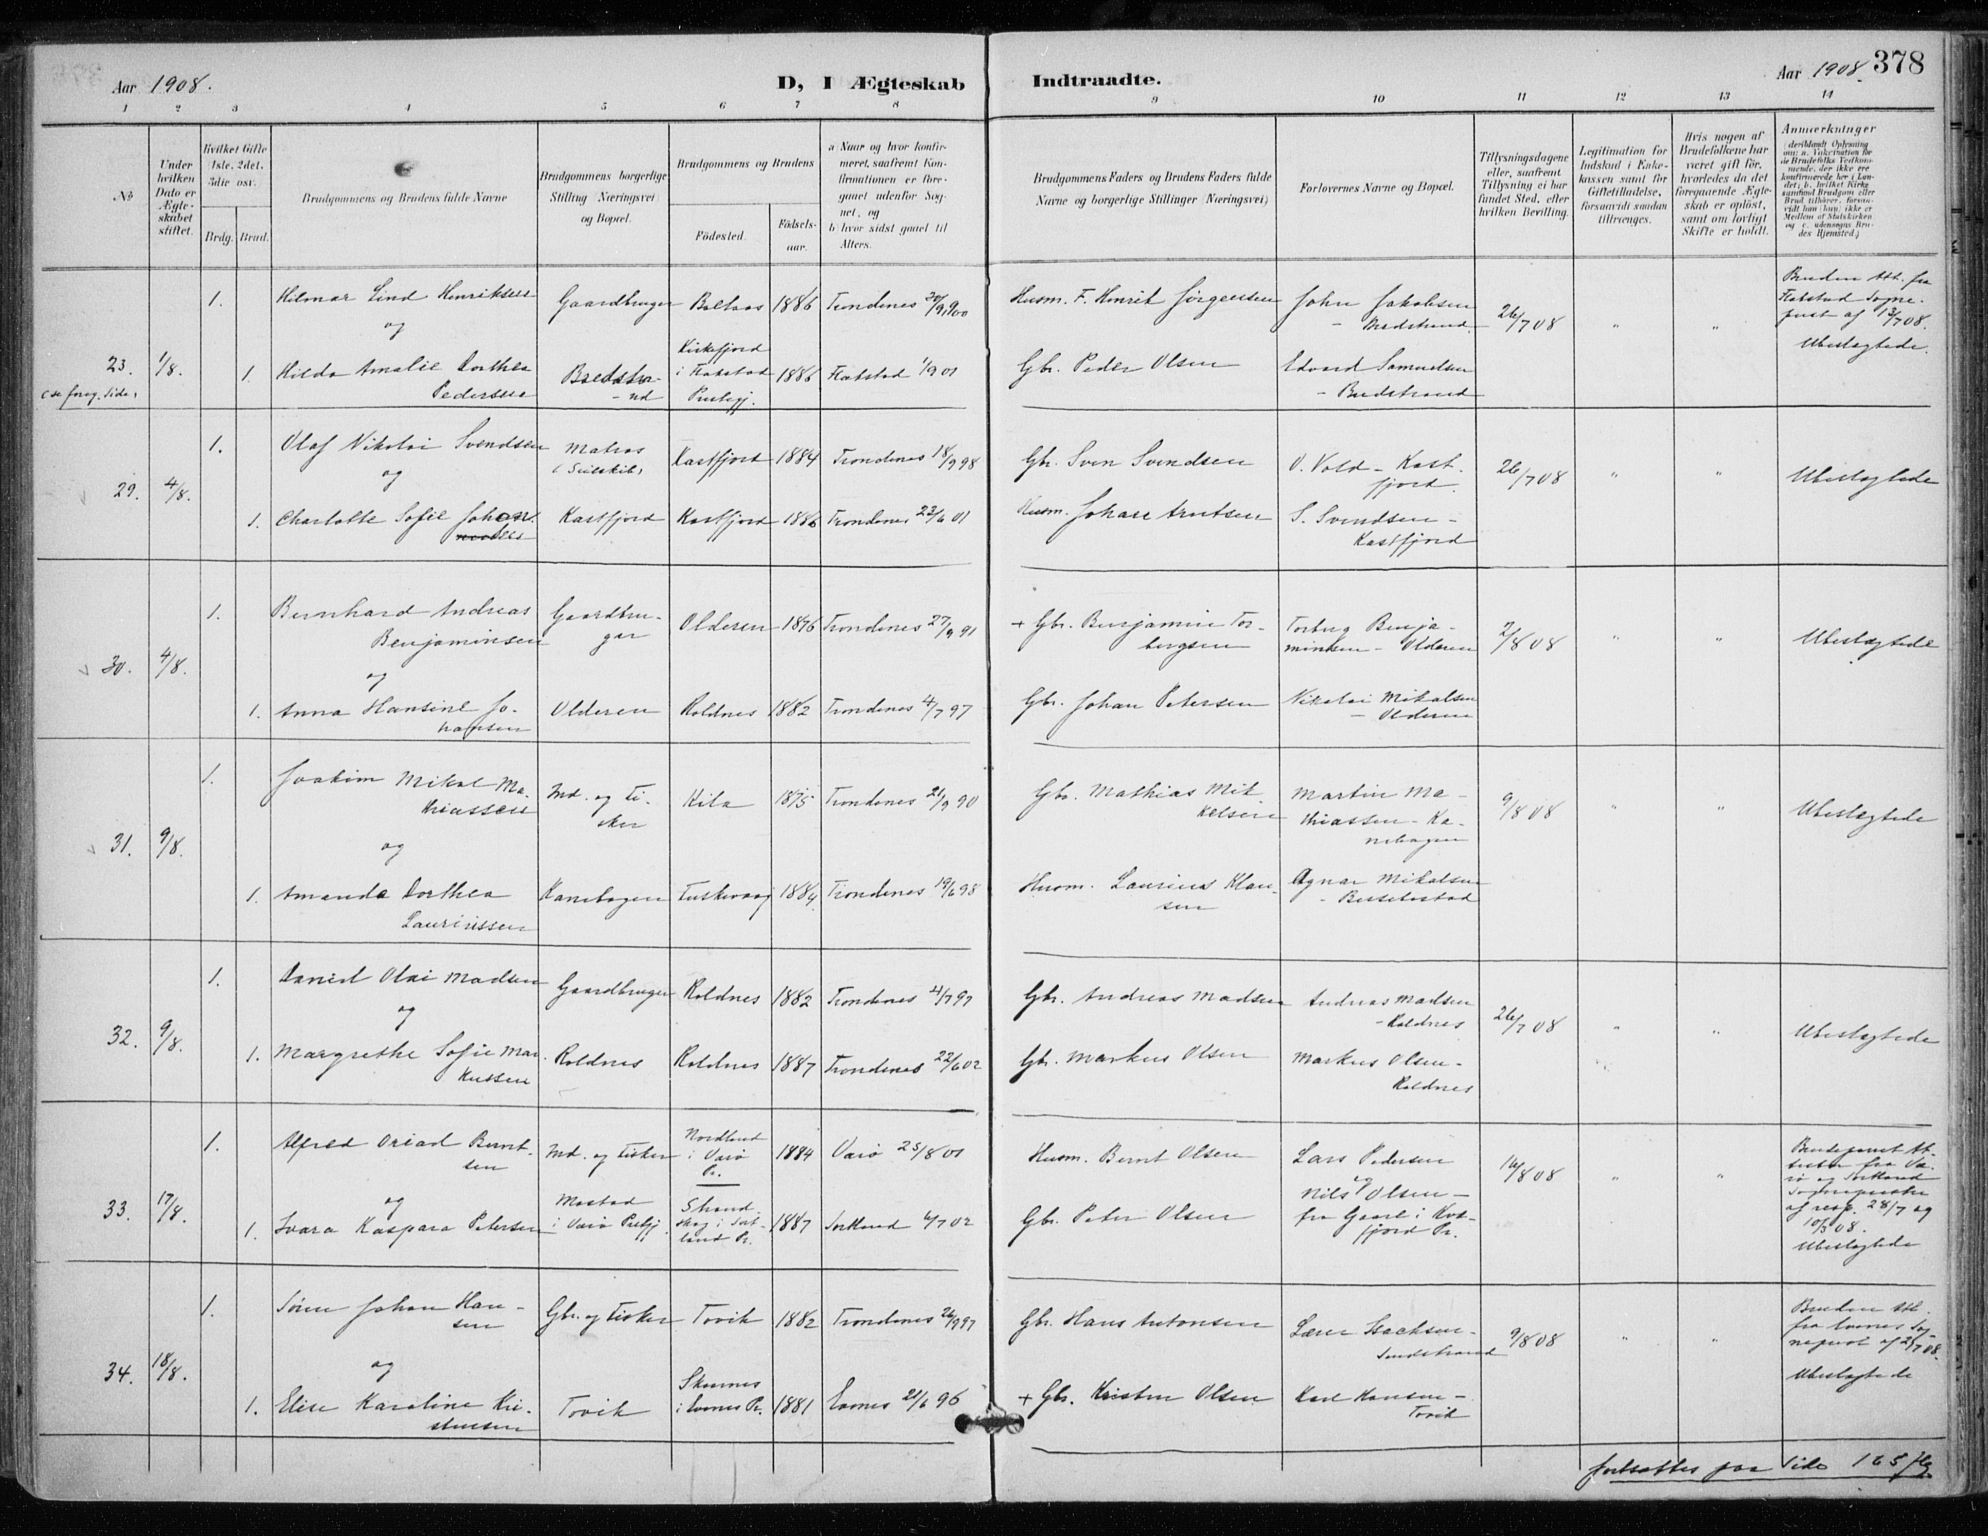 Aar 1908.
D, I Ægteskab Indtraadte.
Aar 1908. 378
1 2 3 4 5 6 7 8 9 10 11 12 13 14
No
Under hvilken Dato er Ægteskabet stiftet.
Hvilket Gifte 1ste, 2det, 3die osv.
Brdg. Brud.
Brudgommens og Brudens fulde Navne
Brudgommens borgerlige Stilling (Næringsvei) og Bopæl.
Brudgommens og Brudens
Födested.
Födsels-aar.
a Naar og hvor konfirmeret, saafremt Konfirmationen er foregaaet udenfor Sognet, og
b hvor sidst gaaet til Alters.
Brudgommens Faders og Brudens Faders fulde Navne og borgerlige Stillinger (Næringsvei)
Forlovernes Navne og Bopæl.
Tillysningsdagene eller, saafremt Tillysning ei har fundet Sted, efter hvilken Bevilling.
Legitimation for Indskud i Enkekassen samt for Giftetilladelse, forsaavidt saadan tiltrænges.
Hvis nogen af Brudefolkene har været gift för, hvorledes da det foregaaende Ægteskab er oplöst, samt om lovligt Skifte er holdt.
Anmærkninger
(deriblandt Oplysning om: a. Vakcination for de Brudefolks Vedkommende, der ikke ere konfirmerede her i Landet; b. hvilket Kirkesamfund Brudgom eller Brud tilhörer, forsaavidt han (hun) ikke er Medlem af Statskirken og c. udensogns Brudes Hjemsted.)
23. (se foreg. Side) 1/8.
1. Hilmar Lind Henriksen Gaardbruger 1886 Trondenes 20/9 1900 Husm. F. Henrik Jørgensen John Jakobsen - Bredstrand 26/7 08 " "
og
1. Hilda Amalie Dorthea Pedersen Bredstrand Kirkefjord i Flakstad Prestegj. 1886 Flakstad 1/9 01 Gbr. Peder Olsen Edvard Samuelsen - Bredstrand
Bruden Att. fra Flakstad Sogneprest af 13/7 08.
Ubeslægtede.
29. 4/8.
1. Olaf Nikolai Svendsen Matros (Seilskib) Kastfjord 1884 Trondenes 18/9 98 Gbr. Sven Svendsen O. Vold - Kastfjord. 26/7 08 " " Ubeslægtede
og
1. Charlotte Sofie Johan. Kastfjord Kastfjord 1886 Trondenes 23/6 01 Husm. Johan Arntsen S. Svendsen - Kastfjord
30. 4/8.
1. Bernhard Andreas Benjaminsen Gaardbruger Olderen 1876 Trondenes 27/9 91 + Gbr. Benjamin Torbergsen Torberg Benjaminsen - Olderen 2/8 08 " " Ubeslægtede
og
1. Anna Hansine Johansen Olderen Roldnes 1882 Trondenes 4/7 97 Gbr. Johan Petersen Nikolai Mikalsen - Olderen
31. 9/8.
1. Joakim Mikal Mathiassen Ind. og Fisker Kila 1875 Trondenes 21/9 90 Gbr. Mathias Mikkelsen Martin Mathiassen - Kanebogen 9/8 08 " " Ubeslægtede
og
1. Amanda Dorthea Laurinssen Kanebogen Tuskevaag 1884 Trondenes 19/6 98 Husm. Laurins Klausen Agnar Mikalsen - Bessebostad
32. 9/8.
1. Daniel Olai Madsen Gaardbruger Roldnes 1882 Trondenes 4/7 97 Gbr. Andreas Madsen Andreas Madsen - Roldnes 26/7 08 " " Ubeslægtede
og
1. Margrethe Sofie Markussen Roldnes Roldnes 1887 Trondenes 22/6 02 Gbr. Markus Olsen Markus Olsen - Roldnes
33. 17/8.
1. Alfred Oriad Berntsen Ind. og Fisker Nordland i Værø Pr. 1884 Værø 25/8 01 Husm. Bernt Olsen Lars Pedersen 16/8 08 " "
og
1. Svara Kaspara Petersen Mostad i Værø Prstgj. Strandskog i Sortland Pr. 1887 Sortland 6/7 02 Gbr. Peter Olsen Nils Olsen - fra Gaarl i Kvæfjord Pr.
Brudeparret Attester fra Værø og Sortland Sogneprester af resp. 28/7 og 10/3 08.
Ubeslægtede
34. 18/8.
1. Søren Johan Hansen Gbr. og Fisker Tovik 1882 Trondenes 26/9 97 Gbr. Hans Antonsen Isachsen - Sandstrand 9/8 08 " "
og
1. Elise Karoline Kristensen Tovik i Evenes Pr. 1881 Evenes 21/6 96 + Gbr. Kristen Olsen Karl Hansen - Tovik
Bruden Att. fra Evenes Sogneprest af 21/7 08.
Ubeslægtede
fortsættes paa Side 165 flg